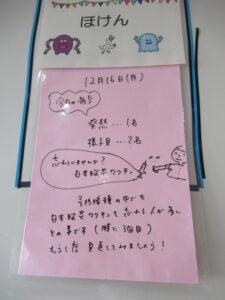 ほけん
12月16日(月)
今日の欠席
発熱…1名
様子見…2名
忘れていませんか?
日本脳炎ワクチン
予防接種の中でも
日本脳炎ワクチンを忘れる人が多い
との事です(特に3回目)
もう一度 見直してみましょう!